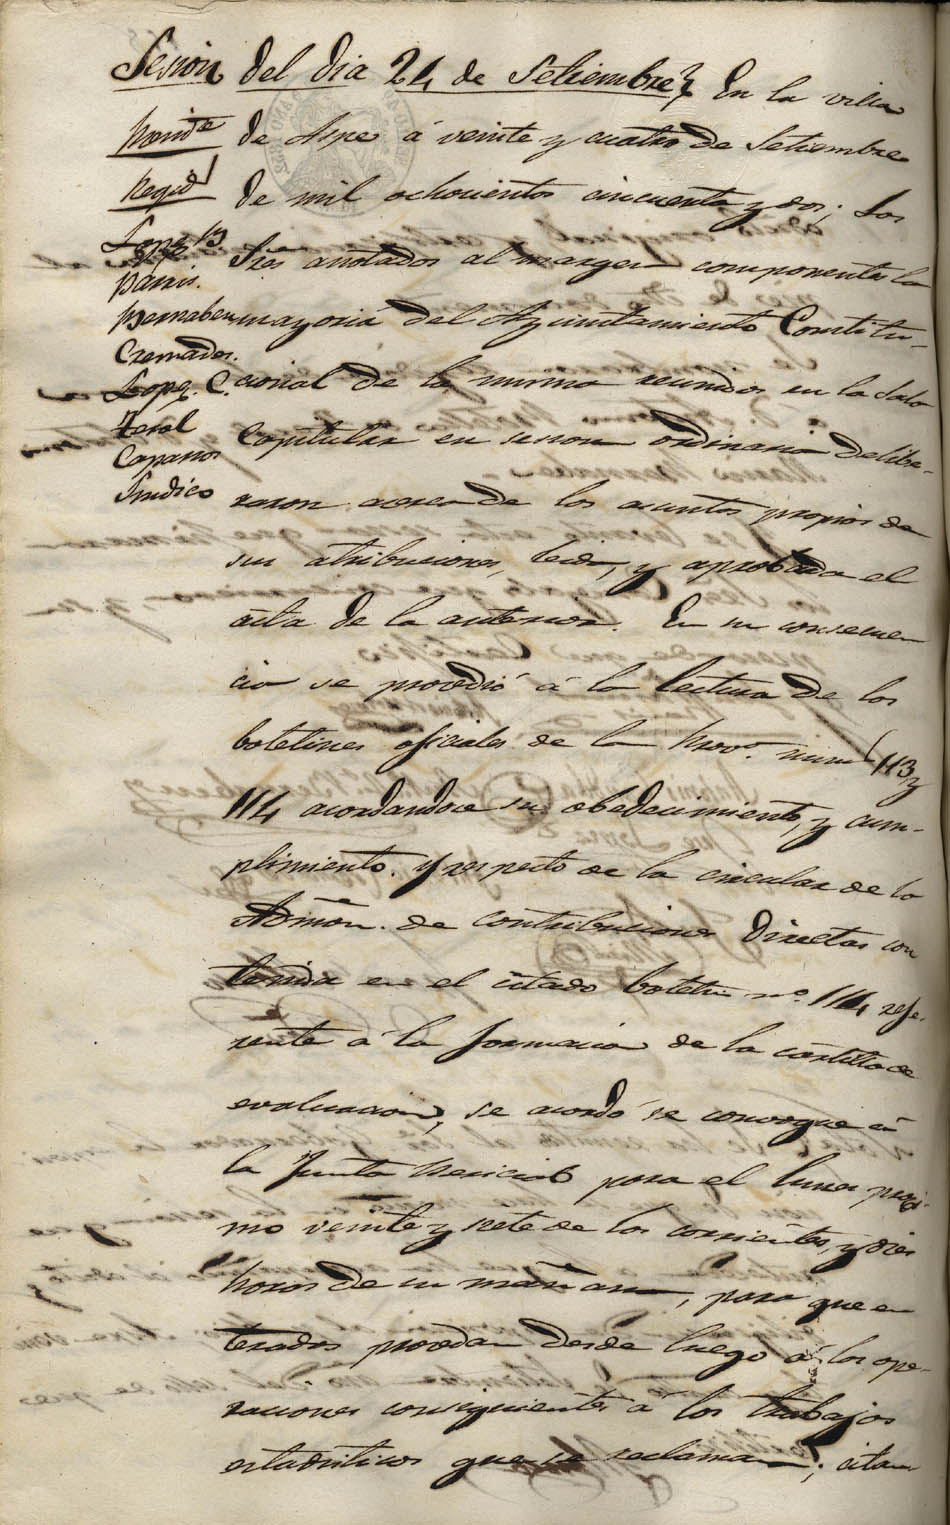 Sesion del dia 24 de Setiembre} En la villa
Presidte
Regid.s
Lopez B.
Parris.
Bernabeu
Cremades.
Lopez C.
Terol
Caparros
Sindico
de Aspe á veinte y cuatro de Setiembre
de mil ochocientos cincuenta y dos; Los
Sres anotados al margen componentes la
mayoria del Ayuntamiento Constitu-
cional de la misma reunidos en la Sala
Capitular en sesion ordinaria delibe-
raron acerca de los asuntos propios de
sus atribuciones, leida, y aprobada el
acta de la anterior. En su consecuen
cia se procedió á la lectura de los
boletines oficiales de la Prova. num.s 113 y
114 acordandose su obedecimiento, y cum-
plimiento. y respecto de la circular de la
Admon. de contribuciones Directas con
tenida en el citado boletin nº. 114 refe-
rente á la formacion de la cartilla de
evaluacion, se acordó se convoque á
la Junta Pericial para el lunes proxi-
mo veinte y siete de los corrientes, y diez
horas de su mañana, para que en
terados procedan desde luego á las ope-
raciones consiguientes á los trabajos
estadisticos que se reclaman; citan